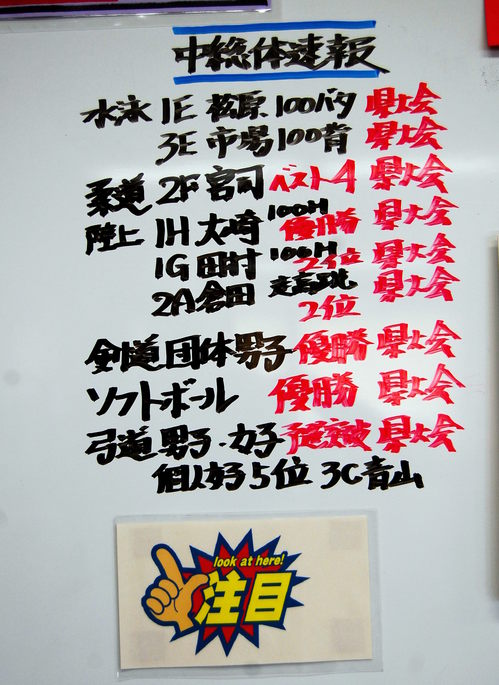 中総体速報
水泳 1E 松原 100バタ 県大会
3E 市場 100背 県大会
柔道 2F 宮司 ベスト4 県大会
陸上 1H 大崎 100H 優勝 県大会
1G 田村 100H 2位 県大会
2A 倉田 走高跳 2位 県大会
剣道団体男子 優勝 県大会
ソフトボール 優勝 県大会
弓道男子・女子 予選突破 県大会
個人女子5位 3C青山
look at here!
注目